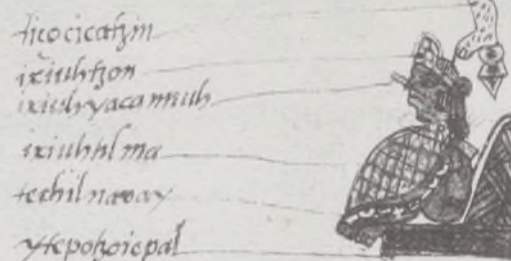 ticocicatzin
ixiuhtzon
ixiuhyacamiuh
ixiuhtilma
techilnavay
ytepotzoicpal